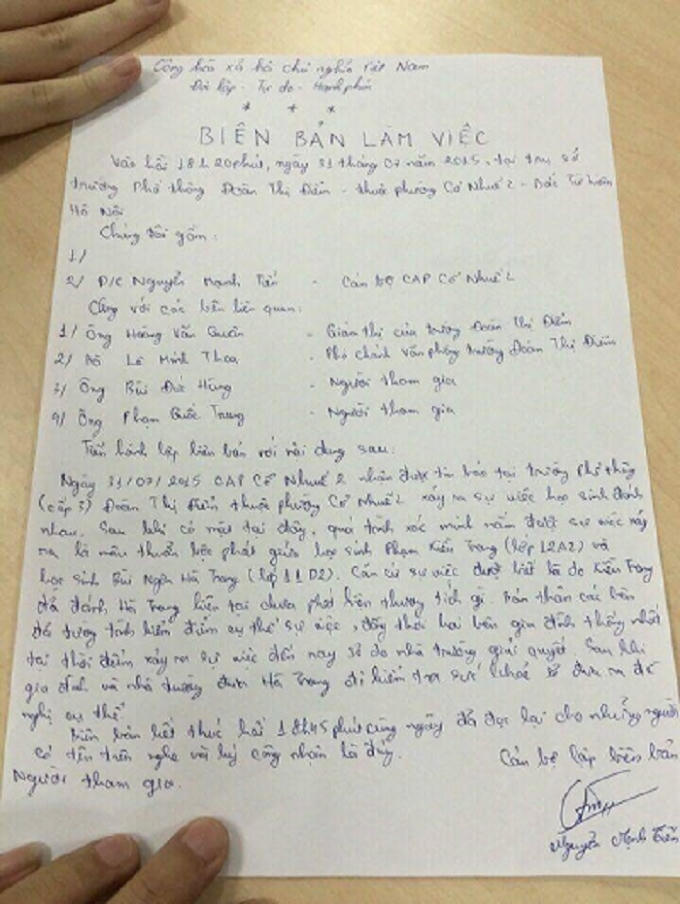 Cộng hòa xã hội chủ nghĩa Việt Nam
Độc lập - Tự do - Hạnh phúc
* * *
BIÊN BẢN LÀM VIỆC
Vào hồi 18h20phút, ngày 31 tháng 07 năm 2015, tại trụ sở
trường Phổ thông Đoàn Thị Điểm - thuộc phường Cổ Nhuế 2 - Bắc Từ Liêm
Hà Nội
Chúng tôi gồm:
1/
2/ Đ/C Nguyễn Mạnh Tiến - Cán bộ CAP Cổ Nhuế 2
Cùng với các bên liên quan:
1/ Ông Hoàng Văn Quân - Giám thị của trường Đoàn Thị Điểm
2/ Bà Lê Minh Thoa - Phó chánh văn phòng trường Đoàn Thị Điểm
3/ Ông Bùi Đức Hùng - Người tham gia
4/ Ông Phạm Quốc Trung - Người tham gia
Tiến hành lập biên bản với nội dung sau:
Ngày 31/07/2015 CAP Cổ Nhuế 2 nhận được tin báo tại trường phổ thông
(cấp 3) Đoàn Thị Điểm thuộc phường Cổ Nhuế 2 xảy ra sự việc học sinh đánh
nhau. Sau khi có mặt tại đây, quá trình xác minh nắm được sự việc xảy
ra là mâu thuẫn bộc phát giữa học sinh Phạm Kiều Trang (lớp 12A2) và
học sinh Bùi Ngân Hà Trang (lớp 11D2). Căn cứ sự việc được biết là do Kiều Trang
đã đánh Hà Trang hiện tại chưa phát hiện thương tích gì. Bản thân các bên
đã tường trình kiểm điểm cụ thể sự việc, đồng thời hai bên gia đình thống nhất
tại thời điểm xảy ra sự việc đến nay sẽ do nhà trường giải quyết. Sau khi
gia đình và nhà trường đưa Hà Trang đi kiểm tra sức khoẻ sẽ đưa ra đề
nghị cụ thể.
Biên bản kết thúc hồi 18h45phút cùng ngày đã đọc lại cho những người
có tên trên nghe và ký công nhận là đúng.
Cán bộ lập biên bản
Người tham gia.
Nguyễn Mạnh Tiến